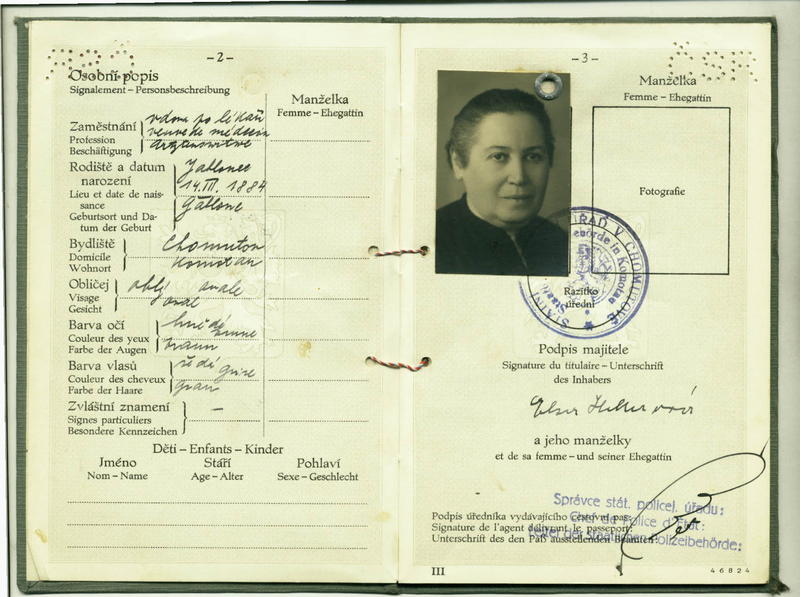 – 2 –
Osobní popis
Signalement – Personsbeschreibung
Manželka
Femme – Ehegattin
Zaměstnání
Profession
Beschäftigung
vdova po lékaři
veuve de médecin
Arztenswitwe
Rodiště a datum
narození
Lieu et date de nais-
sance
Geburtsort und Da-
tum der Geburt
Jablonec
14. III. 1884
Gablonz
Bydliště
Domicile
Wohnort
Chomutov
Komotau
Obličej
Visage
Gesicht
oblý ovale
oval
Barva očí
Couleur des yeux
Farbe der Augen
hnědé brune
braun
Barva vlasů
Couleur des cheveux
Farbe der Haare
šedé grise
grau
Zvláštní znamení
Signes particuliers
Besondere Kennzeichen
–
Děti – Enfants – Kinder
Jméno Stáří Pohlaví
Nom – Name Age – Alter Sexe – Geschlecht
– 3 –
Manželka
Femme – Ehegattin
Fotografie
STÁTNÍ ÚŘAD V CHOMUTOVĚ
behörde in Komotau
Razítko
úřední
Podpis majitele
Signature du titulaire – Unterschrift
des Inhabers
a jeho manželky
et de sa femme – und seiner Ehegattin
Správce stát. policej. úřadu:
Chef de Police d'Etat:
Leiter der staatlichen Polizeibehörde:
Podpis úředníka vydávajícího cestovní pas
Signature de l'agent délivrant le passeport
Unterschrift des den Paß ausstellenden Beamten
III
46824